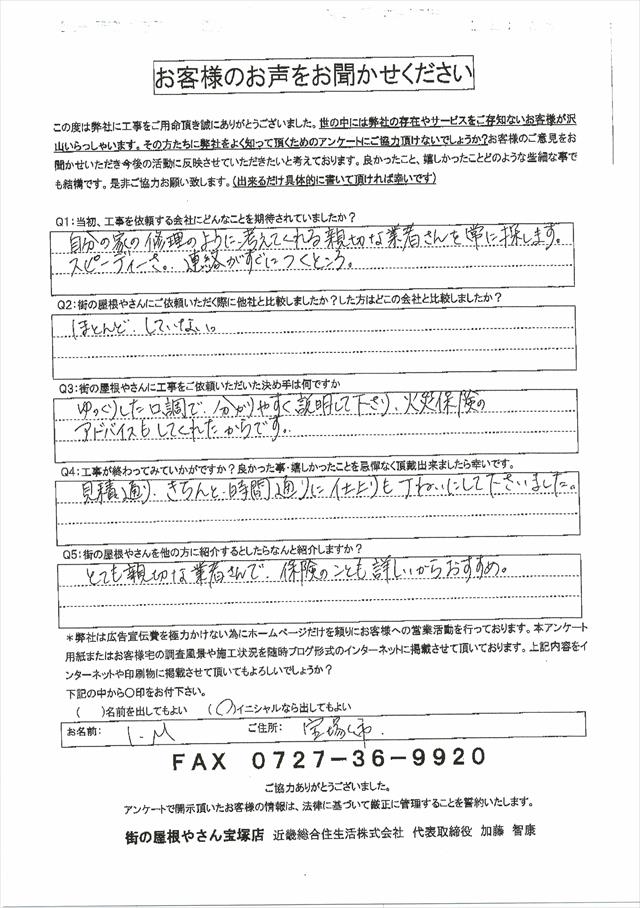 お客様のお声をお聞かせください
この度は弊社に工事をご用命頂き誠にありがとうございました。世の中には弊社の存在やサービスをご存知ないお客様が沢
山いらっしゃいます。その方たちに弊社をよく知って頂くためのアンケートにご協力頂けないでしょうか?お客様のご意見をお
聞かせいただき今後の活動に反映させていただきたいと考えております。良かったこと、嬉しかったことどのような些細な事で
も結構です。是非ご協力お願い致します。(出来るだけ具体的に書いて頂ければ幸いです)
Q1:当初、工事を依頼する会社にどんなことを期待されていましたか?
自分の家の修理のように考えてくれる親切な業者さんを常に探します。
スピーディーさ。連絡がすぐにつくところ。
Q2:街の屋根やさんにご依頼いただく際に他社と比較しましたか?した方はどこの会社と比較しましたか?
ほとんど、していない。
Q3:街の屋根やさんに工事をご依頼いただいた決め手は何ですか
ゆっくりした口調で、分かりやすく説明して下さり、火災保険の
アドバイスもしてくれたからです。
Q4:工事が終わってみていかがですか?良かった事・嬉しかったことを忌憚なく頂戴出来ましたら幸いです。
見積通り、きちんと時間通りに仕上りも丁ねいにして下さいました。
Q5:街の屋根やさんを他の方に紹介するとしたらなんと紹介しますか?
とても親切な業者さんで、保険のことも詳しいからおすすめ。
*弊社は広告宣伝費を極力かけない為にホームページだけを頼りにお客様への営業活動を行っております。本アンケート
用紙またはお客様宅の調査風景や施工状況を随時ブログ形式のインターネットに掲載させて頂いております。上記内容をイ
ンターネットや印刷物に掲載させて頂いてもよろしいでしょうか?
下記の中から○印をお付下さい。
( )名前を出してもよい (○)イニシャルなら出してもよい
お名前: I.M ご住所: 宝塚市.
FAX 0727-36-9920
ご協力ありがとうございました。
アンケートで開示頂いたお客様の情報は、法律に基づいて厳正に管理することを誓約いたします。
街の屋根やさん宝塚店 近畿総合住生活株式会社 代表取締役 加藤 智康